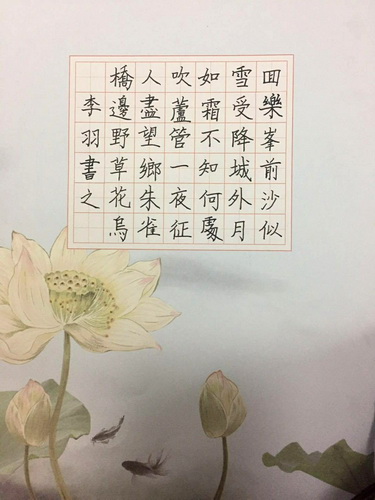 回樂峯前沙似
雪受降城外月
如霜不知何處
吹蘆管一夜征
人盡望鄉朱雀
橋邊野草花烏
李羽書之